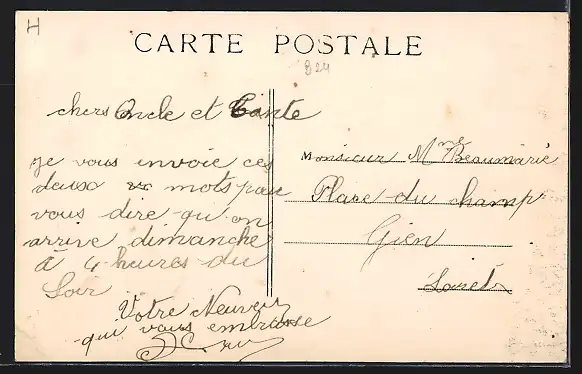 H
CARTE POSTALE
824
chers Oncle et Tante
je vous envoie ces
deux mots pour
vous dire qu'on
arrive dimanche
à 4 heures du
Soir
Votre Neuveu
qui vous embrasse
Monsieur Mme Beaumarié
Place du champ
Gien
Loiret